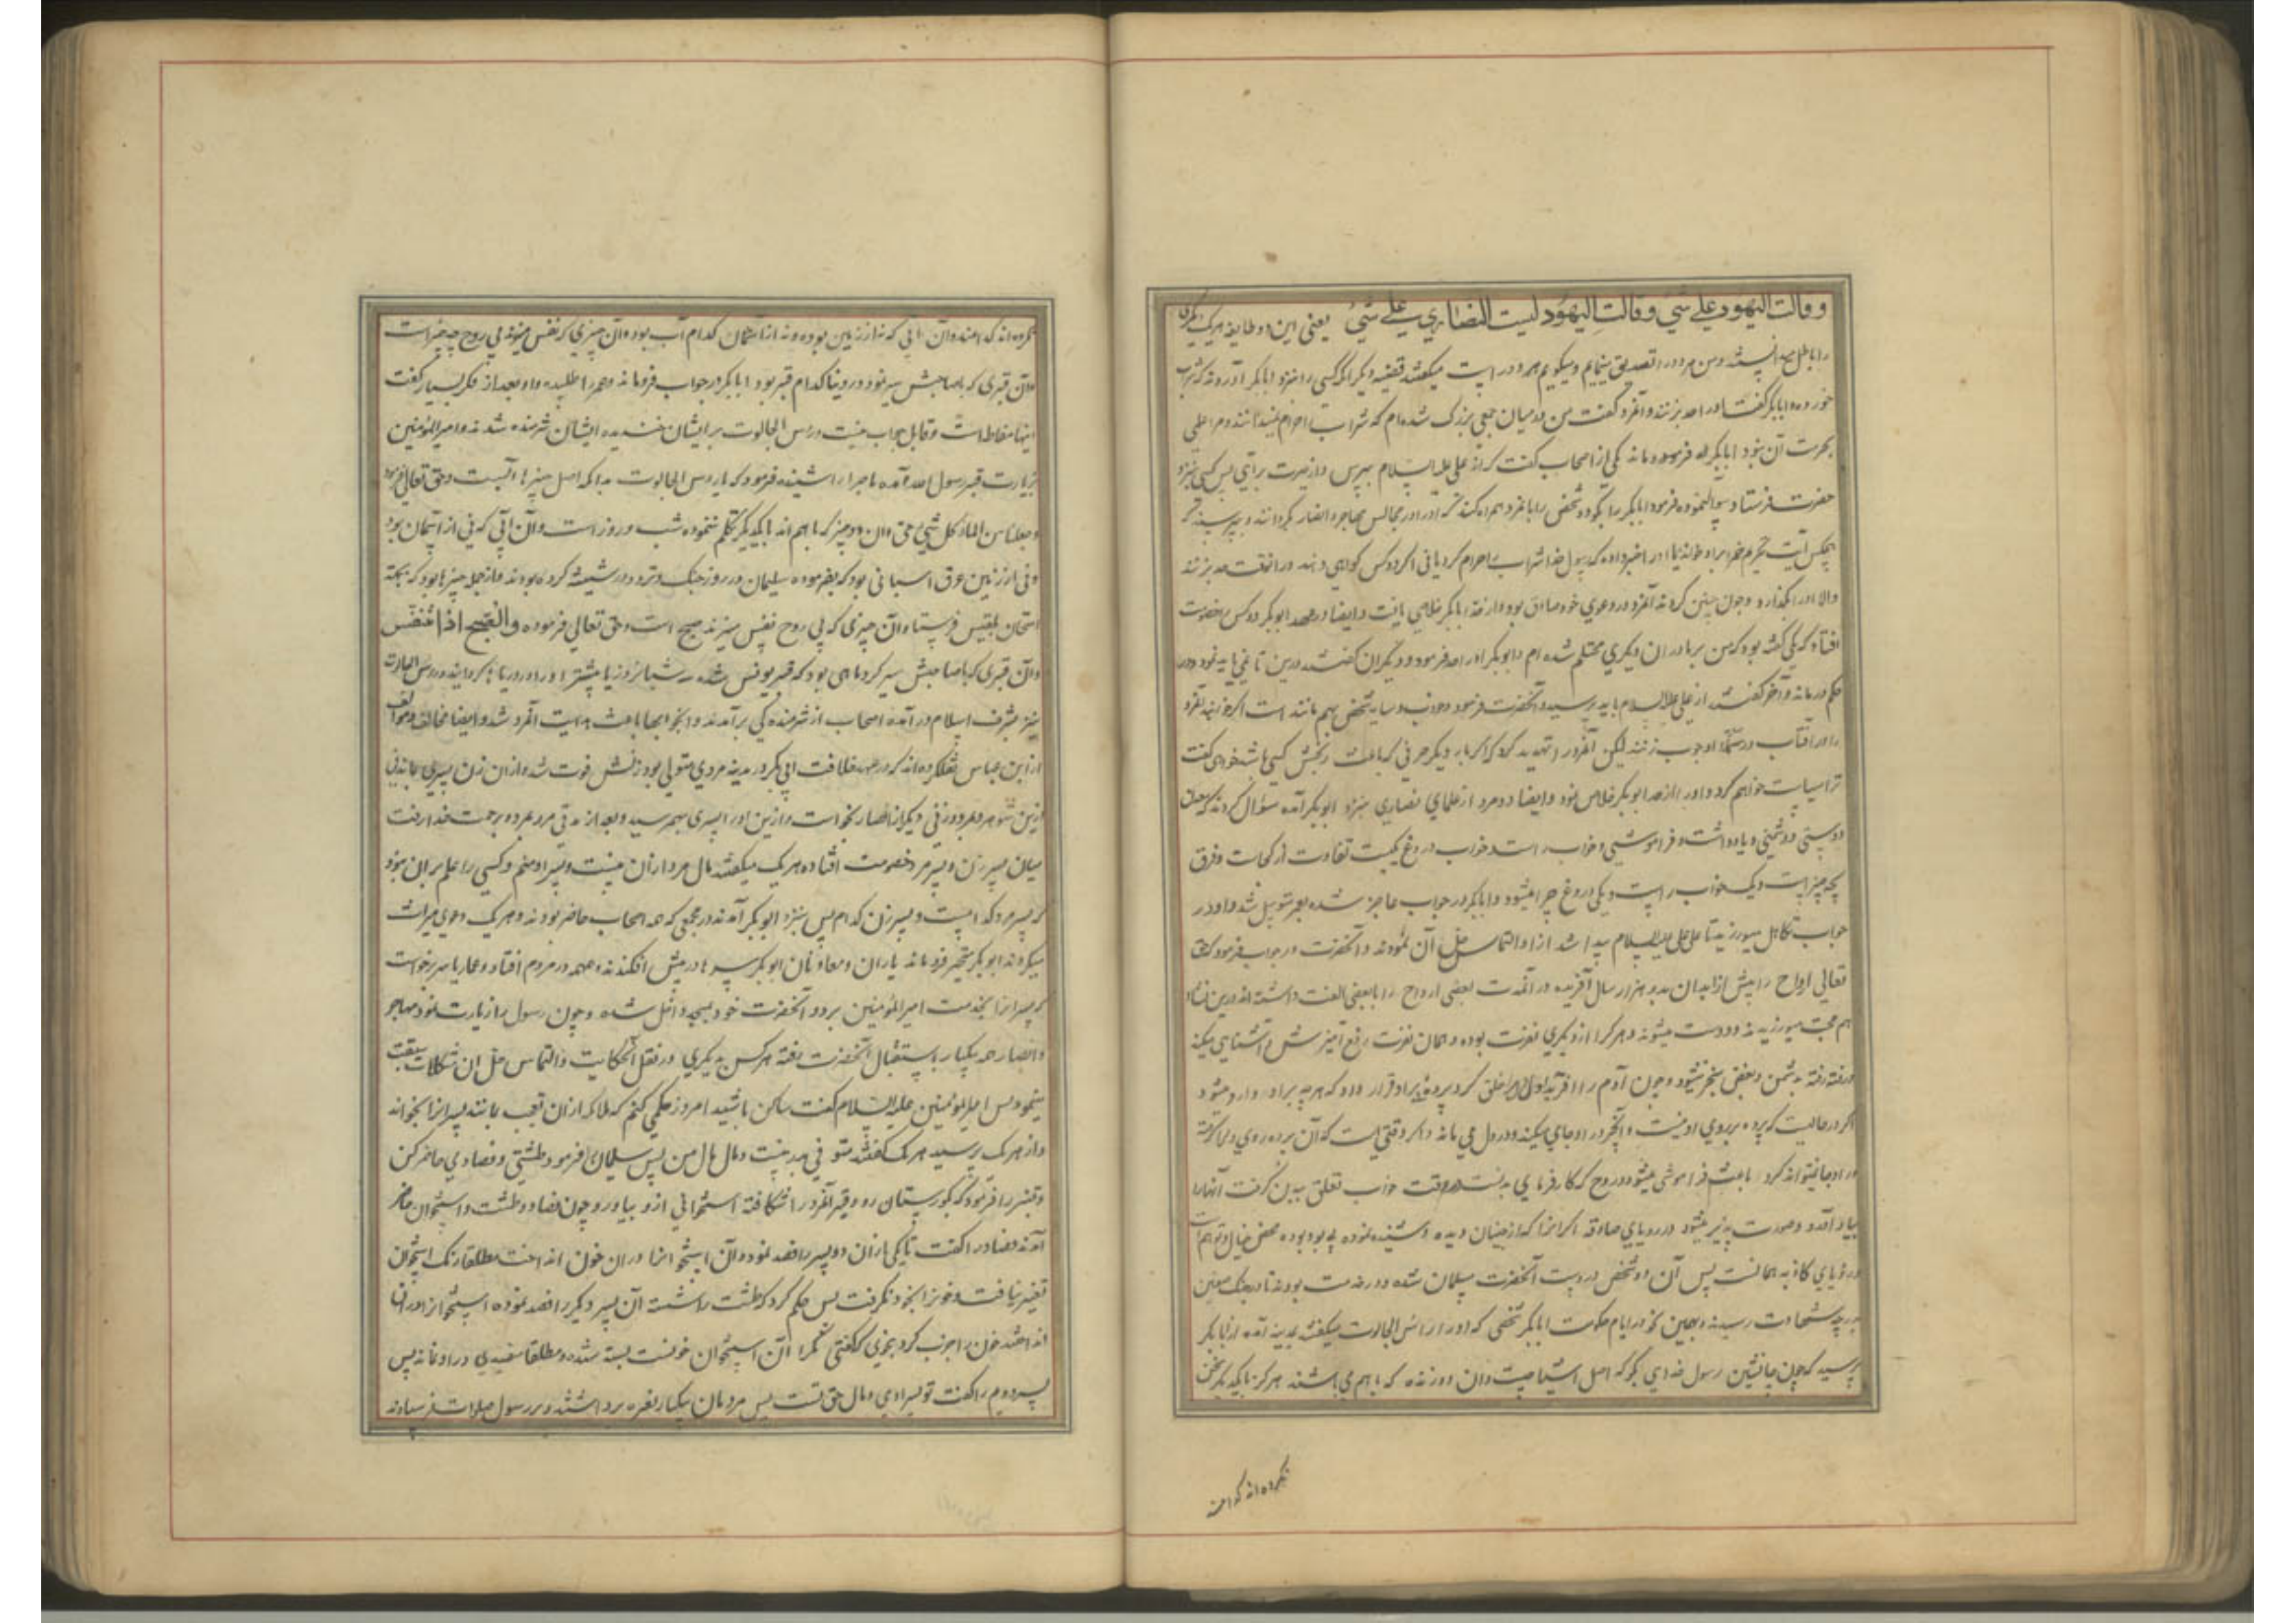 و قالت اليهود علی شی و قالت اليهود ليست النصاری علی شی یعنی این دو طایفه هریک دیگری
را باطل میدانستند و من هر دو را تصدیق مینمایم و میگویم هر دو راست میگفتند قضیه دیگر آنکه کسی را بنزد ابابکر آوردند که شراب
خورده و ابابکر گفت او را حد بزنند و آنمرد گفت من در میان جمعی بزرگ شده‌ام که شراب را حرام نمیدانند و مرا علمی
بحرمت آن نبود ابابکر فروماند یکی از اصحاب گفت که از علی علیه السلام بپرس و از حیرت برآی پس کسی بنزد
حضرت فرستاد و سوال نموده فرمود ابابکر را بگو دو شخص را با آنمرد همراه کند که او را در مجالس مهاجر و انصار بگردانند و بپرسند که
هیچکس آیت تحریم خمر بر او خوانده یا او را خبر داده که رسول خدا شراب را حرام کرده یا نی اگر دو کس گواهی دهند او را حد بزنند
والا او را بگذارد و چون چنین کردند آنمرد در دعوی خود صادق بود و از حد ابابکر خلاصی یافت و ایضا در عهد ابوبکر دو کس را خصومت
افتاد که یکی گفته بود که من بر مادر آن دیگری محتلم شده‌ام و ابوبکر او را حد فرمود و دیگران گفتند درین تاملی باید نمود و در
حکم درماند و آخر گفتند از علی علیه السلام باید پرسید و آنحضرت فرمود که خواب و سایه شخص بهم مانند است اگر خواهید آنمرد
را در آفتاب دار و سایه او چوب زنند لیکن آنمرد را تهدید کرد که اگر بار دیگر حرفی که باعث رنجش کسی باشد خواهی گفت
ترا سیاست خواهم کرد و او را از حد ابوبکر خلاص نمود و ایضا دو مرد از علمای نصاری بنزد ابوبکر آمده سؤال کردند که معدن
دوستی و دشمنی و یادداشت و فراموشی و خواب راست و خواب دروغ یکیست تفاوت از کجاست و فرق
بچه چیز است و یک خواب راست و یکی دروغ چرا میشود و ابابکر در جواب عاجز شده بعمر متوسل شد و او در
جواب تکاهل میورزید تا علی علیه السلام پیدا شد از او التماس حل آن نمودند و آنحضرت در جواب فرمود که حق
تعالی ارواح را پیش از ابدان بدو هزار سال آفریده در آنمدت بعضی ارواح را با بعضی الفت داشته‌اند درین نشاه
هم محبت میورزیدند و دوست میشوند و هر کرا از دیگری نفرت بوده همان نفرت رفع آمیزش و آشنایی میکند
و رفته رفته بدشمنی و بغض منجر میشود و چون آدم را آفرید اول دل او را خلق کرد و پرده بر او قرار داد که هر چه بر او وارد میشود
اگر در حالیست که پرده بر روی او نیست و آنچه در او جای میکند و در دل می ماند و اگر وقتی است که آن پرده روی دل گرفته
در او جا نیتواند کرد باعث فراموشی میشود و روح که کارفرمای بدنست در وقت خواب تعلق ببدن گرفت آنها را
بیاد آمد و صورت پذیر میشود در رویای صادقه اگر آنرا که از چنان دیده و شنیده نموده بی بود بوده محض خیال و توهم است
و رویای کاذبه همانست پس آن دو شخص در دست آنحضرت مسلمان شده و در خدمت بودند تا در جنگ صفین
بدرجه شهادت رسیدند و همچنین نیز در ایام حکومت ابابکر شخصی که او را راس الجالوت میگفتند بمدینه آمده از ابابکر
پرسید که چون جانشین رسول خدایی بگو که اصل اشیا چیست و آن دو زنده که با هم می باشند هرگز با یکدیگر سخن
نکرده‌اند کدامند
نکرده‌اند کدامند و آن آبی که نه از زمین بوده و نه از آسمان کدام آب بوده و آن چیزی که نفس میزند بی روح چه چیز است
و آن قبری که با صاحبش سیر نمود در دنیا کدام قبر بود ابابکر در جواب فروماند و عمر را طلبیده و او بعد از فکر بسیار گفت
اینها مغالطه است و قابل جواب نیست و راس الجالوت بر ایشان خندیده ایشان شرمنده شدند و امیرالمؤمنین
بزیارت قبر رسول الله آمده ماجرا را شنیده فرمود که یا راس الجالوت بدانکه اصل چیزها آبست و حق تعالی فرمود
و جعلنا من الماء کل شیئ حی و آن دو چیز که با هم اند با یکدیگر تکلم ننموده شب و روز است و آن آبی که نی از آسمان بود
و نی از زمین عرق اسبانی بود که بفرموده سلیمان در روز جنگ و تردد در شیشه کرده بودند و از جمله چیزها بود که بجهة
امتحان بلقیس فرستاد و آن چیزی که بی روح نفس میزند صبح است و حق تعالی فرموده والصبح اذا تنفس
و آن قبری که با صاحبش سیر کرد ماهی بود که قبر یونس شده سه شبانروز یا بیشتر او را در دریا بگردانید و راس الجالوت
نیز بشرف اسلام درآمده اصحاب از شرمندگی برآمدند و این جوابها باعث هدایت آنمرد شد و ایضا مخالف و موالف
از ابن عباس نقل کرده‌اند که در عهد خلافت ابی بکر در مدینه مردی متولی بود زنش فوت شد و از آن زن پسری ماند
آن مرد زنی دیگر از انصار بخواست و ازین او را پسری بهم رسید و بعد از مدتی مرد مرده برحمت خدا رفت
میان پسر زن و پسر مرد خصومت افتاده هر یک میگفتند مال مرد از آن منست و پسر او منم و کسی را علم بر آن نبود
که پسر مرد کدامست و پسر زن کدام پس بنزد ابوبکر آمدند در مجمعی که همه اصحاب حاضر بودند و هر یک دعوی میراث
میکردند ابوبکر متحیر فروماند یاران و معاونان ابوبکر سرها در پیش افکندند و همهمه در مردم افتاد و عمار یاسر برخواست
که پسرانرا بخدمت امیرالمؤمنین برد و آنحضرت خود بمسجد داخل شده و چون رسول را زیارت نمود مهاجر
و انصار همه بیکبار باستقبال آنحضرت رفته هر کس بدیگری در نقل آن حکایت و التماس حل آن مشکلات سبقت
مینمود پس امیرالمؤمنین علیه السلام گفت ساکن باشید امروز حکمی کنم که ملائکه از آن تعجب بمانند پسرانرا بخواند
و از هر یک پرسید هر یک گفتند متوفی پدر منست و مال مال من پس سلمان را فرمود طشتی و فصادی حاضر کن
و قنبر را فرمود که بگورستان رو و قبر آنمرد را شکافته استخوانی ازو بیاور و چون فصاد و طشت و استخوان حاضر
آمدند فصاد را گفت تا یکی از آن دو پسر را فصد نموده آن استخوانرا در آن خون انداخت مطلقا رنگ استخوان
تغییر نیافت و خونرا بخود نگرفت پس حکم کرد که طشت را شسته آن پسر دیگر را فصد نموده استخوانرا در آن
انداختند خون را جذب کرد بنحوی که گفتی مگر آن استخوان خونست بسته شده و مطلقا سفیدی در او نماند پس
پسر دویم را گفت تو پسر اویی و مال حق تست پس مردمان بیکبار نعره برداشتند و بر رسول صلوات فرستادند